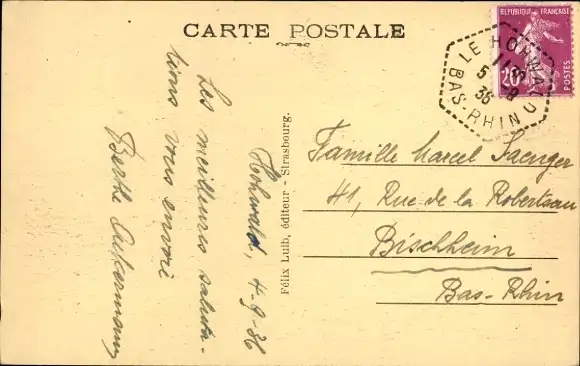 CARTE POSTALE
REPUBLIQUE FRANÇAISE
20
POSTES
LE HOHWALD
5
36
BAS-RHIN
Hohwald, 4-9-36
Les meilleures saluta-
tions vous envoie
Berthe
Félix Luib, éditeur - Strasbourg.
Famille Marcel Saenger
41, Rue de la Robertsau
Bischheim
Bas-Rhin